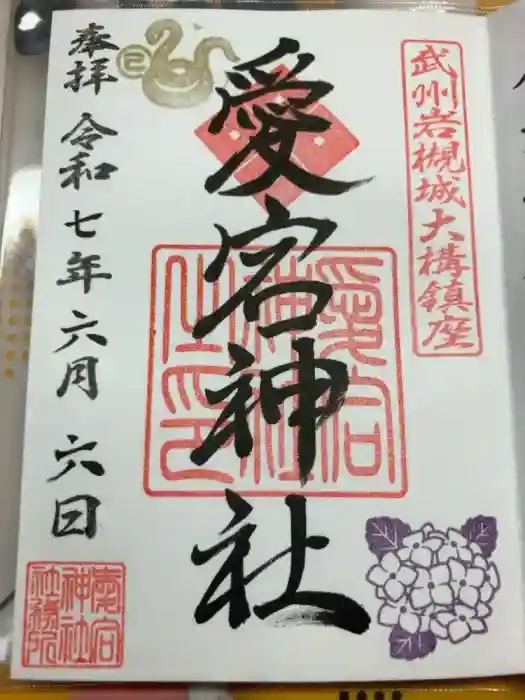 武州岩槻城大構鎮座
愛宕神社
愛宕神社之印
奉拝 令和七年六月六日
巳
愛宕神社社務所